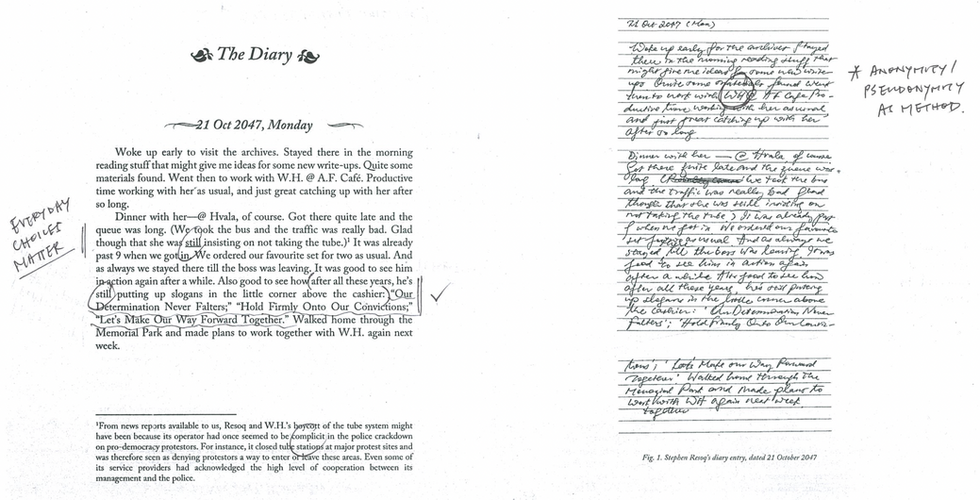 The Diary
21 Oct 2047, Monday
Woke up early to visit the archives. Stayed there in the morning
reading stuff that might give me ideas for some new write-ups. Quite some
materials found. Went then to work with W.H. @ A.F. Café. Productive
time working with her as usual, and just great catching up with her after
so long.
Dinner with her—@ Hvala, of course. Got there quite late and the
queue was long. (We took the bus and the traffic was really bad. Glad
though that she was still insisting on not taking the tube.)¹ It was already
past 9 when we got in. We ordered our favourite set for two as usual. And
as always we stayed there till the boss was leaving. It was good to see him
in action again after a while. Also good to see how after all these years, he's
still putting up slogans in the little corner above the cashier: “Our
Determination Never Falters;” “Hold Firmly Onto Our Convictions;”
“Let's Make Our Way Forward Together.” Walked home through the
Memorial Park and made plans to work together with W.H. again next
week.
EVERYDAY
CHOICES
MATTER
¹From news reports available to us, Resoq and W.H.'s boycott of the tube system might
have been because its operator had once seemed to be complicit in the police crackdown
on pro-democracy protestors. For instance, it closed tube stations at major protest sites and
was therefore seen as denying protestors a way to enter or leave these areas. Even some of
its service providers had acknowledged the high level of cooperation between its
management and the police.
21 Oct 2047 (Mon)
Woke up early for the archives Stayed
there in the morning reading stuff that
might give me ideas for some new write-
ups Quite some materials found Went
then to work with WH @ AF Cafe Pro-
ductive time working with her as usual
and just great catching up with her
after so long
Dinner with her — @ Hvala of course
Got there quite late and the queue was
long (We took the bus
and the traffic was really bad Glad
though that she was still insisting on
not taking the tube) It was already past
9 when we got in We ordered our favourite
set for two as usual And as always we
stayed till the boss was leaving It was
good to see him in action again
after a while Also good to see how
after all these years he's still putting
up slogans in the little corner above
the cashier: 'Our Determination Never
Falters'; 'Hold Firmly Onto Our Convic-
tions'; 'Let's Make our Way Forward
Together' Walked home through the
Memorial Park and made plans to
work with WH again next week
together
Fig. 1. Stephen Resoq's diary entry, dated 21 October 2047
* ANONYMITY/
PSEUDONYMITY
AS METHOD.